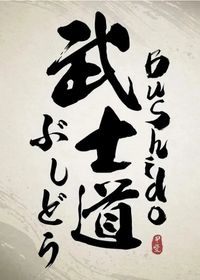 武士道
ぶしどう
Bushido